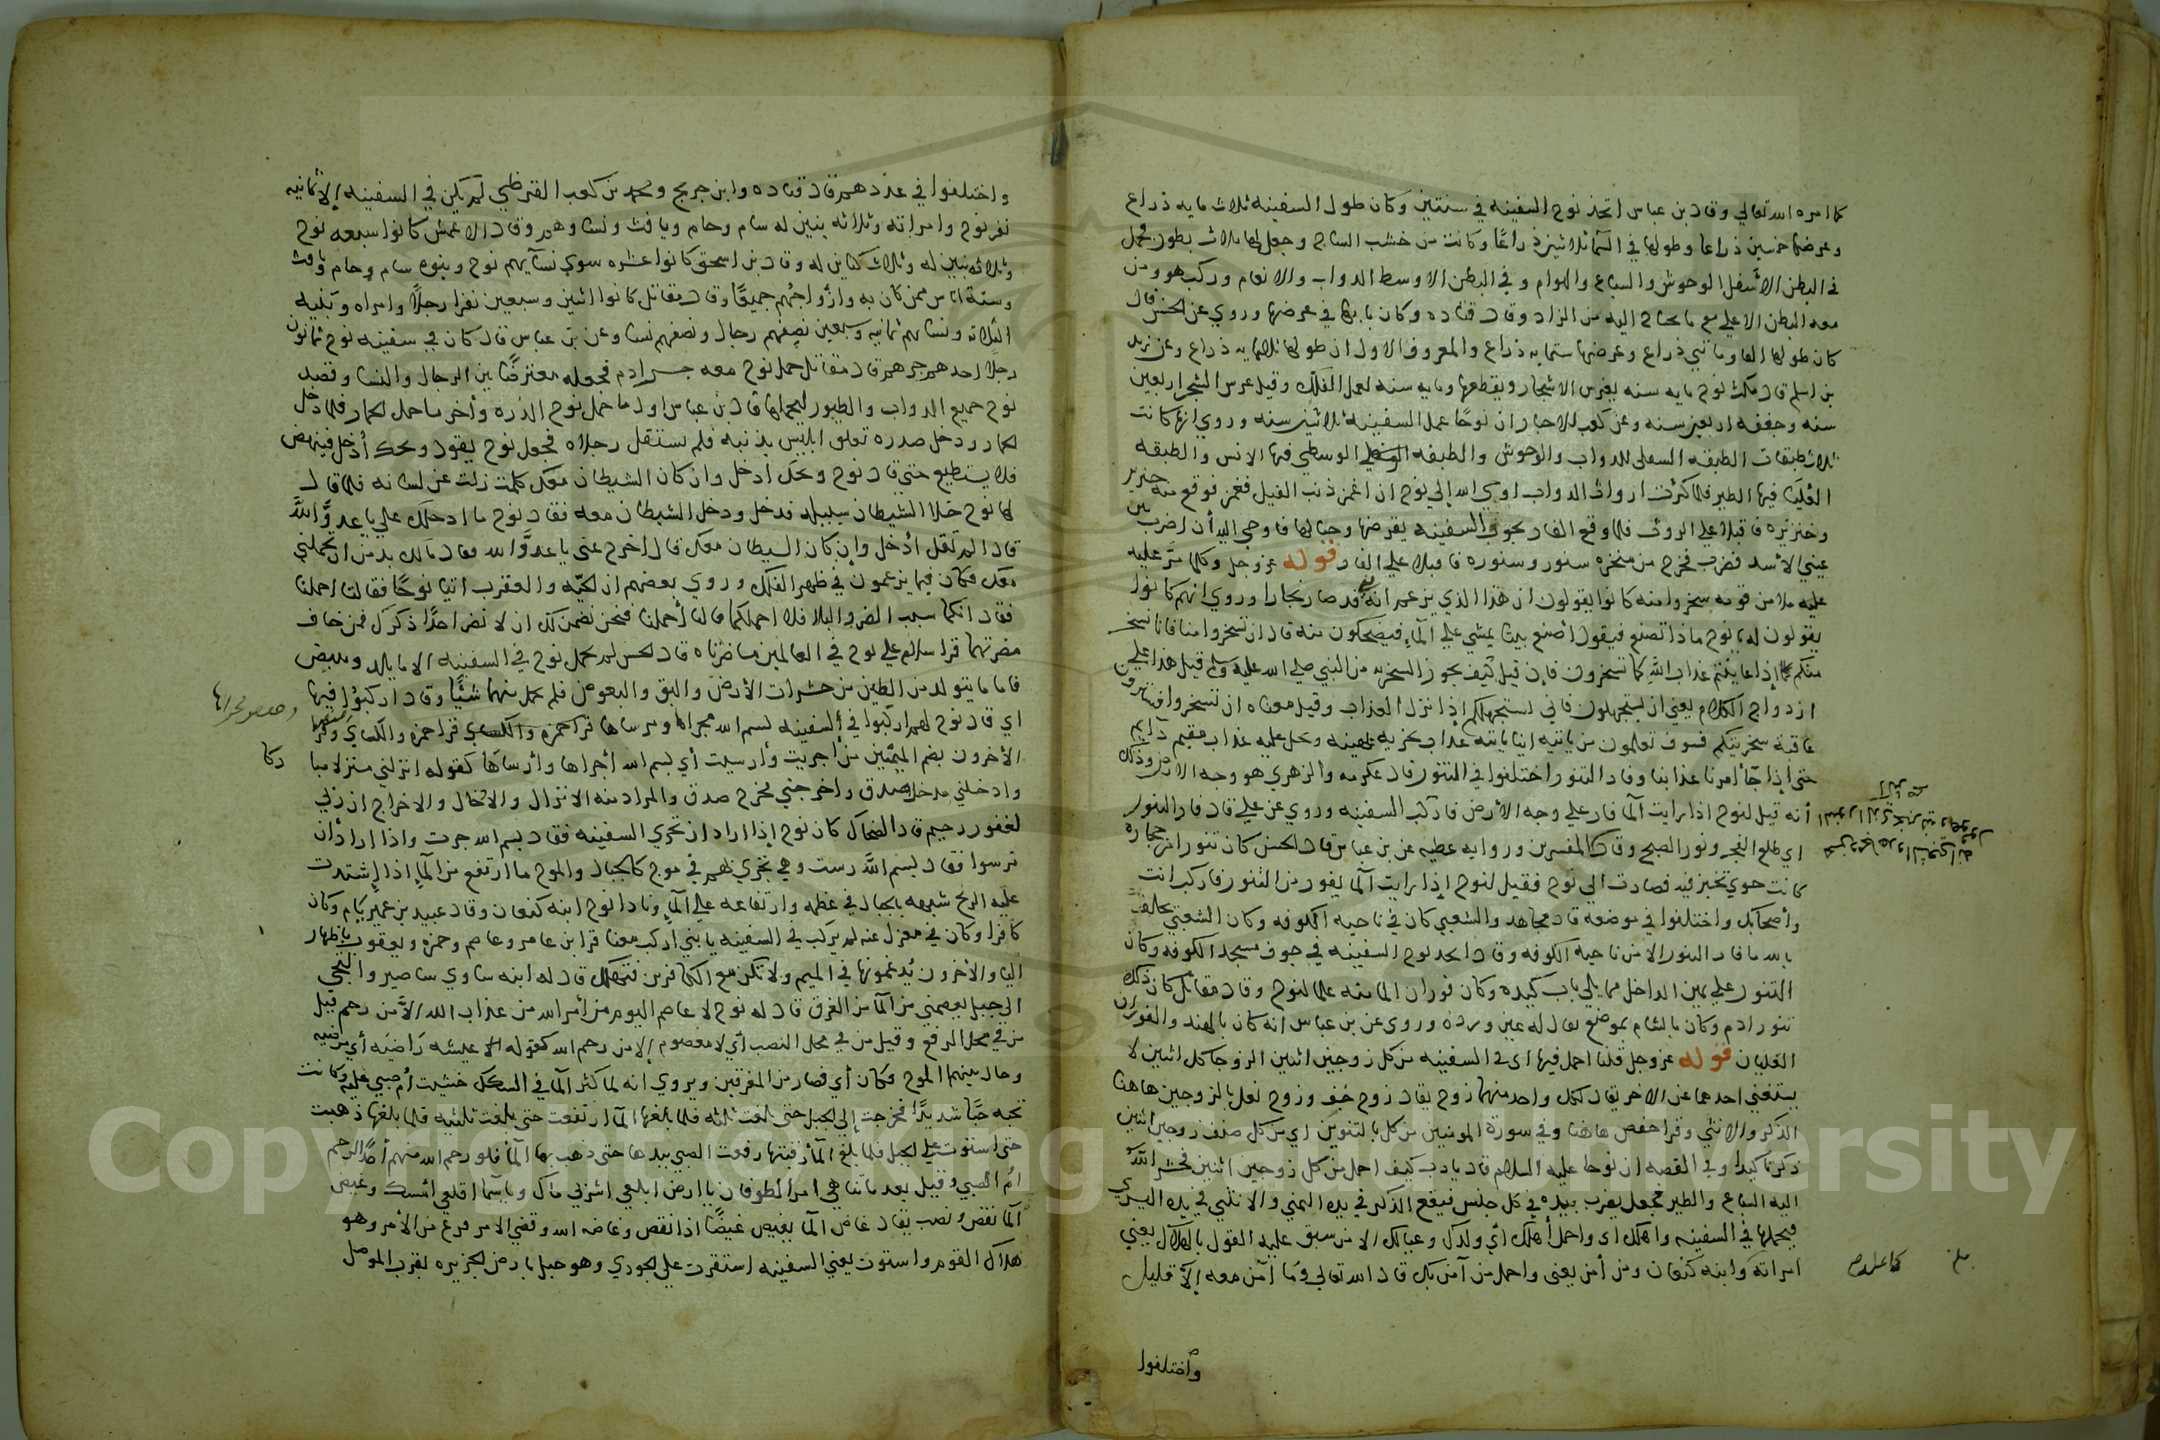 كما امره الله تعالي وقال بن عباس اتخذ نوح السفينه في سنتين وكان طول السفينه ثلاث مايه ذراع
وعرضها خمسين ذراعا وطولها في السما ثلاثين ذراعًا وكانت من خشب الساج وجعل لها ثلاث بطون فحمل
في البطن الاسفل الوحوش والسباع والهوام وفي البطن الاوسط الدواب والانعام وركب هو ومن
معه البطن الاعلي مع ما يحتاج اليه من الزاد وقال قتاده وكان بابها في عرضها وروي عن الحسن قال
كان طولها الفا وماتي ذراع وعرضها ستمايه ذراع والمعروف الاول ان طولها ثلثمايه ذراع وعن زيد
بن اسلم قال مكث نوح مايه سنه يغرس الاشجار ويقطعها ومايه سنه لعمل الفلك وقيل غرس الشجر اربعين
سنه وجففه اربعين سنه وعن كعب الاحبار ان نوحًا عمل السفينه ثلاثين سنه وروي انها كانت
ثلاث طبقات الطبقه السفلي للدواب والوحوش والطبقه الوسطي فيها الانس والطبقه
العُليَا فيها الطير فلما كثرت ارواث الدواب اوحي الله إلي نوح ان اغمز ذنب الفيل فغمز فوقع منه خنزير
وخنزيره فاقبلا علي الروث فلما وقع الفار بجوف السفينه يقرضها وحبالها فاوحي اليه أن اضرب بين
عيني الاسد فضرب فخرج من منخره سنور وسنوره فاقبلا علي الفار قوله عز وجل وكلما مرَّ عليه
عليه ملا من قومه سخروا منه كانوا يقولون ان هذا الذي يزعم انه نبي قد صار نجارا وروي انهم كانوا
يقولون له يا نوح ماذا تصنع فيقول أصنع بيتا يمشي علي المآء فيضحكون منه قال ان تسخروا منا فانا نسخر
منكم إذا عاينتم عذاب الله كما تسخرون فإن قيل كيف يجوز السخريه من النبي صلي الله عليه وسلم قيل هذا علي
ازدواج الكلام يعني ان تستجهلون فاني استجهلكم إذا نزل العذاب وقيل معناه ان تسخروا منا فسترون
عاقبة سخريتكم فسوف تعلمون من ياتيه اينا ياتيه عذاب يخزيه يهينه ويحل عليه عذاب مقيم دايم
حتي إذا جآ أمرنا عذابنا وفار التنور اختلفوا في التنور قال عكرمه والزهري هو وجه الارض وذلك
أنه قيل لنوح اذا رايت المآ فار علي وجه الأرض فاركب السفينه وروي عن علي قال فار التنور
اي طلع الفجر ونور الصبح وقال المفسرين وروايه عطيه عن بن عباس قال الحسن كان تنورا من حجاره
كانت حوي تخبز فيه فصارت الي نوح فقيل لنوح إذا رايت المآ يفور من التنور فاركب انت
وأصحابك واختلفوا في موضعه قال مجاهد والشعبي كان في ناحيه الكوفه وكان الشعبي يحالف
بالله ما فار التنور الا من ناحيه الكوفه وقال اتخذ نوح السفينه في جوف مسجد الكوفه وكان
التنور علي يمين الداخل مما يلي باب كنده وكان فوران الما منه علما لنوح وقال مقاتل كان ذلك
تنور ادم وكان بالشام بموضع يقال له عين ورده وروي عن بن عباس انه كان بالهند والفوران
الغليان قوله عز وجل قلنا احمل فيها اي في السفينه من كل زوجين اثنين الزوجا كل اثنين لا
يستغني احدهما عن الاخر يقال لكل واحد منهما زوج يقال زوج خف وزوج نعل بالزوجين هاهنا
الذكر والانثي وقرا حفص هاهنا وفي سورة المومنين من كل بالتنوين اي من كل صنف زوجين اثنين
ذكره تاكيدا وفي القصه ان نوحا عليه السلام قال يا رب كيف احمل من كل زوجين اثنين فحشر الله
اليه السباع والطير فجعل يضرب بيديه في كل جنس فيقع الذكر في يده اليمني والانثي في يده اليسري
فيحملها في السفينه واهلك اي واحمل أهلك أي ولدك وعيالك الا من سبق عليه القول بالهلاك يعني
امراته وابنه كنعان ومن أمن يعني واحمل من آمن بك قال الله تعالي وما آمن معه إلا قليل
واختلفوا
واختلفوا في عددهم قال قتاده وابن جريج ومحمد بن كعب القرظي لم يكن في السفينه إلا ثمانيه
نفر نوح وامراته وثلاثه بنين له سام وحام ويافث ونساوهم وقال الاعمش كانوا سبعه نوح
وثلاثه بنين له وثلاث كناين له وقال بن اسحق كانوا عشره سوي نسآيهم نوح وبنوه سام وحام ويافث
وستة اناس ممن كان به وأزواجهُم جميعًا وقال مقاتل كانوا اثنين وسبعين نفرا رجلًا وامراه وبنيه
الثلاثه ونساهم ثمانيه وسبعين نصفهم رجال ونصفهم نسا وعن بن عباس قال كان في سفينه نوح ثمانون
رجلا احدهم جرهم قال مقاتل حمل نوح معه جسد ادم فجعله معترضًا بين الرجال والنسا وقصد
نوح جميع الدواب والطيور ليحملها قال بن عباس اول ما حمل نوح الذره وأخر ما حمل الحمار فلما دخل
الحمار ودخل صدره تعلق ابليس بذنبه فلم يستقل رجلاه فجعل نوح يقول ويحك أدخل فينهض
فلا يستطيع حتي قال نوح ويحك ادخل وان كان الشيطان معك كلمت زلت عن لسانه فلما قال
لها نوح خلا الشيطان سبيله فدخل ودخل الشيطان معه فقال نوح ما ادخلك علي يا عدوَّ الله
قال الم تقل أدخل وإن كان الشيطان معك قال اخرج عني يا عدوَّ الله فقال مالك بد من ان تحملني
معك فكان فيما يزعمون في ظهر الفلك وروي بعضهم ان الحيّه والعقرب اتيا نوحًا فقالتا احملنا
فقال انكما سبب الضر والبلا فلا احملكما قالتا أحملنا فنحن نضمن لك ان لا نضر احدًا ذكرك فمن خاف
مضرتهما قرا سلام علي نوح في العالمين ما ضرتاه قال الحسن لم يحمل نوح في السفينه الا ما يلد ويبيض
فاما ما يتولد من الطين من حشرات الأرض والبق والبعوض فلم يحمل منها شئًا وقال اركبوا فيها
اي قال نوح لهم اركبوا في السفينه بسم الله مجراها ومرساها قرا حمزه والكساي
الأخرون بضم الميمّين من أجريت وأرسيت أي بسم الله أجراها وأرساها كقوله انزلني منزلا مباركا
وادخلني مدخل صدق واخرجني مخرج صدق والمراد منه الانزال والادخال والاخراج ان ربي
لغفور رحيم قال الضحاك كان نوح إذا اراد ان تجري السفينه فقال بسم الله جرت واذا اراد أن
ترسوا فقال بسم الله رست وهي تجري بهم في موج كالجبال والموج ما ارتفع من المآء اذا اشتدت
عليه الريح شبهه بالجبال في عظمه وارتفاعه علي المآ ونادا نوح ابنه كنعان وقال عبيد بن عمير يام وكان
كافرا وكان في معزل عنه لم يركب في السفينه يا بني اركب معنا قرا ابن عامر وعاصم وحمزه ويعقوب باظهار
اليا والأخرون يُدغمونها في الميم ولا تكن مع الكافرين فتهلك قال له ابنه ساوي ساصير والتجي
الي جبل يعصمني من المآ من الغرق قال له نوح لا عاصم اليوم من أمر الله من عذاب الله الاَّ من رحم قيل
من في محل الرفع وقيل من في محل النصب أي لا معصوم إلا من رحم الله كقوله عيشه راضيه أي مرضيه
وحال بينهم الموج فكان أي فصار من المغرقين ويروي انه لما كثر المآ في السكك خشيت أم صبي عليه وكانت
تحبه حبًّا شديدًا فخرجت إلي الجبل حتي بلغت ثلثه فلما بلغها المآ ارتفعت حتي بلغت ثلثيه فلما بلغها ذهبت
حتي استوت علي الجبل فلما بلغ المآ رقبتها رفعت الصبي بيدها حتي ذهب بها المآ فلو رحم الله منهم أحدًا لرحم
ام الصبي وقيل بعد ما تناهي امر الطوفان يا ارض ابلعي اشربي ماك ويا سما اقلعي امسك وغيض
المآ نقص ونضب يقال غاض المآ يغيض غيضًا اذا نقص وغاضه الله وقضي الامر فرغ من الأمر وهو
هلاك القوم واستوت يعني السفينه استقرت علي الجودي وهو جبل بارض الجزيره بقرب الموصل